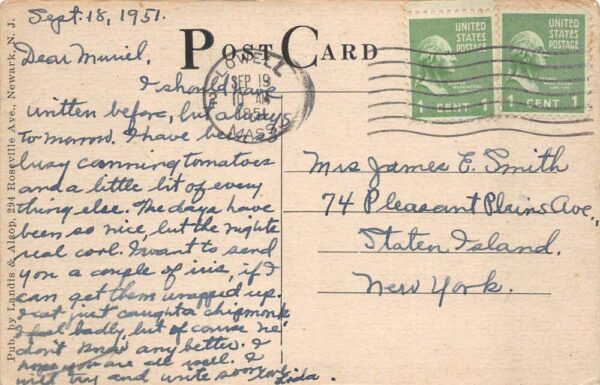 Sept. 18, 1951.
POST CARD
Dear Muriel,
I should have
written before, but always
to morrow. I have been so
busy canning tomatoes
and a little bit of every
thing else. The days have
been so nice, but the nights
real cool. I want to send
you a couple of iris, if I
can get them wrapped up.
cat just caught a chipmonk
I feel badly, but of course he
don't know any better. I
hope you are all well. I
will try and write soon. Love
Linda.
LOWELL
SEP 19
10 AM
1951
MASS.
UNITED
STATES
POSTAGE
1 CENT 1
UNITED
STATES
POSTAGE
1 CENT 1
Mrs James E. Smith
74 Pleasant Plains Ave.,
Staten Island.
New York.
Pub. by Landis & Alsop, 294 Roseville Ave., Newark, N. J.